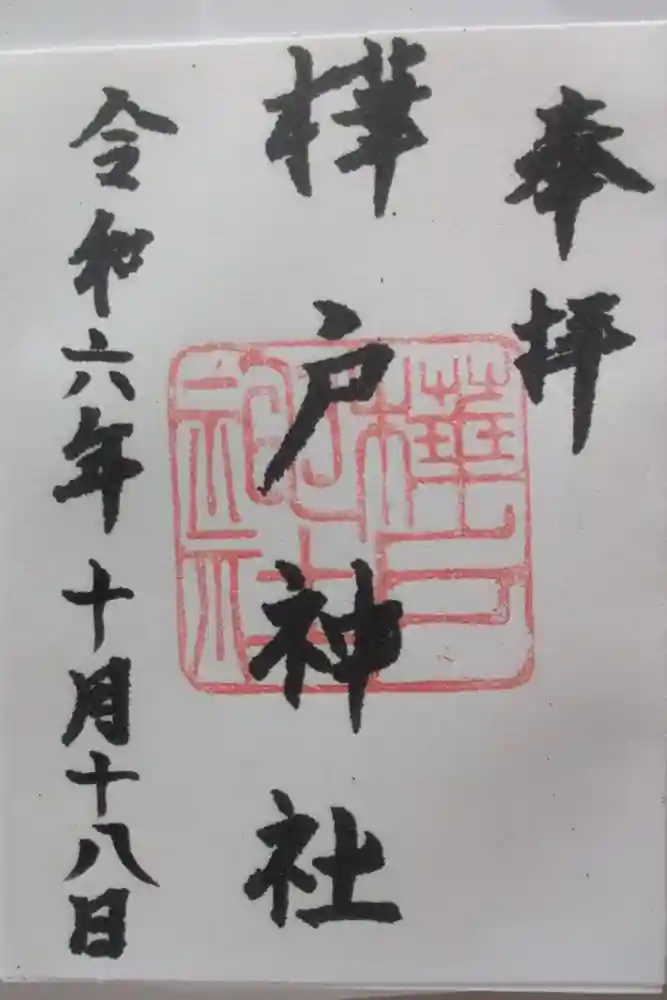 奉拝
樺戸神社
樺戸神社
令和六年十月十八日